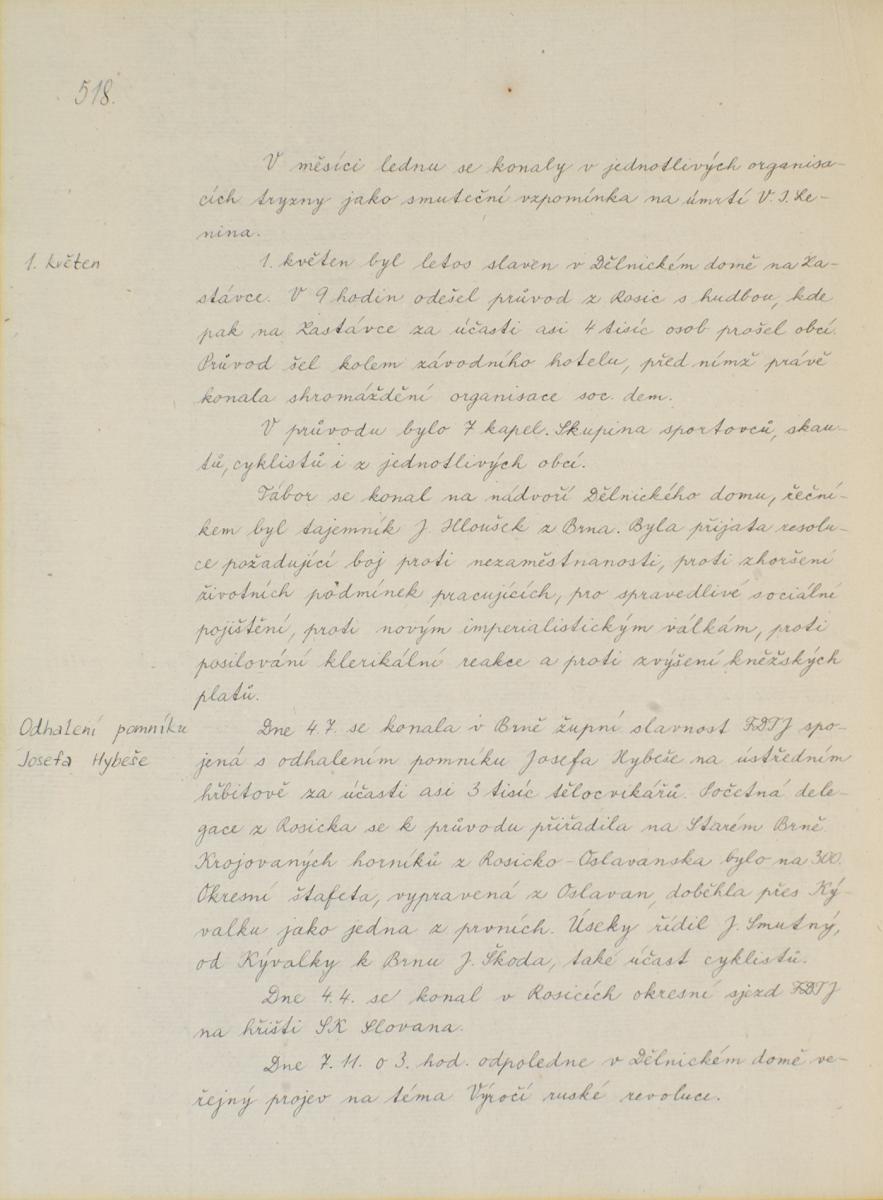 518.
V měsíci lednu se konaly v jednotlivých organisa-
cích tryzny jako smuteční vzpomínka na úmrtí V. I. Le-
nina.
1. květen
1. květen byl letos slaven v Dělnickém domě na Za-
stávce. V 9 hodin odešel průvod z Rosic s hudbou, kde
pak na Zastávce za účasti asi 4 tisíc osob prošel obcí.
Průvod šel kolem závodního hotelu, před nímž právě
konala shromáždění organisace soc. dem.
V průvodu bylo 7 kapel. Skupina sportovců, skau-
tů, cyklistů i z jednotlivých obcí.
Tábor se konal na nádvoří Dělnického domu, řeční-
kem byl tajemník J. Hloušek z Brna. Byla přijata resolu-
ce požadující boj proti nezaměstnanosti, proti zhoršení
životních podmínek pracujících, pro spravedlivé sociální
pojištění, proti novým imperialistickým válkám, proti
posilování klerikální reakce a proti zvýšení kněžských
platů.
Odhalení pomníku
Josefa Hybeše
Dne 4.7. se konala v Brně župní slavnost FDTJ spo-
jená s odhalením pomníku Josefa Hybeše na ústředním
hřbitově za účasti asi 3 tisíc tělocvikářů. Početná dele-
gace z Rosicka se k průvodu přiřadila na Starém Brně.
Krojovaných horníků z Rosicko-Oslavanska bylo na 300.
Okresní štafeta, vypravená z Oslavan, doběhla přes Ký-
valku jako jedna z prvních. Úseky řídil J. Smutný,
od Kývalky k Brnu J. Škoda, také účast cyklistů.
Dne 4.4. se konal v Rosicích okresní sjezd FDTJ
na hřišti SK Slovana.
Dne 7.11. o 3. hod. odpoledne v Dělnickém domě ve-
řejný projev na téma Výročí ruské revoluce.